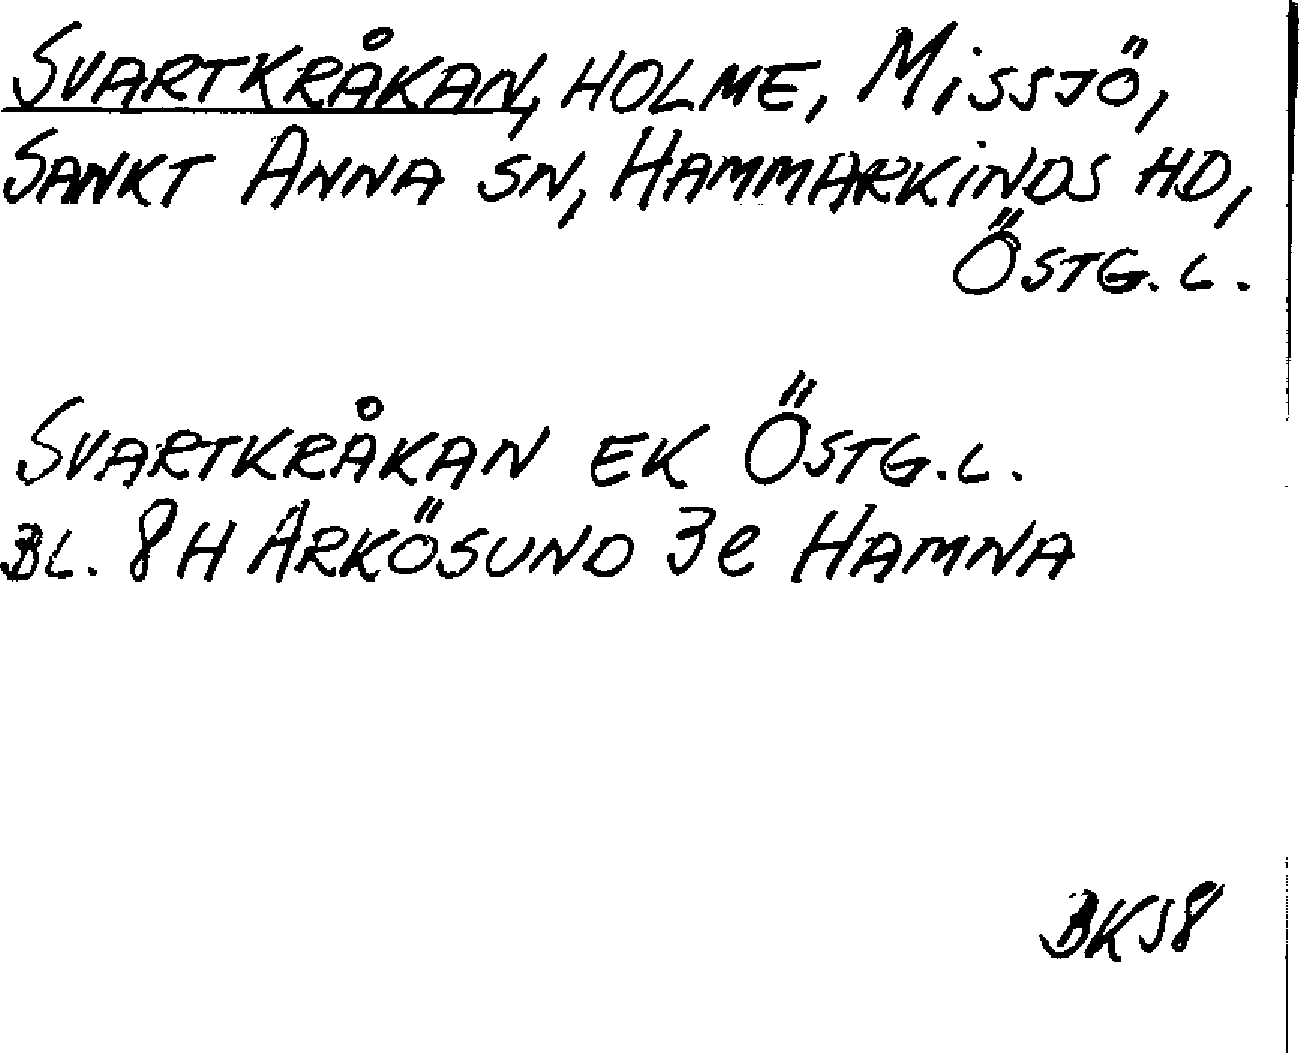 SVARTKRÅKAN, HOLME, MISSJÖ,
SANKT ANNA SN, HAMMARKINDS HD,
ÖSTG. L.
SVARTKRÅKAN EK ÖSTG.L.
BL. 8H ARKÖSUND 3e HAMNA
BKS8